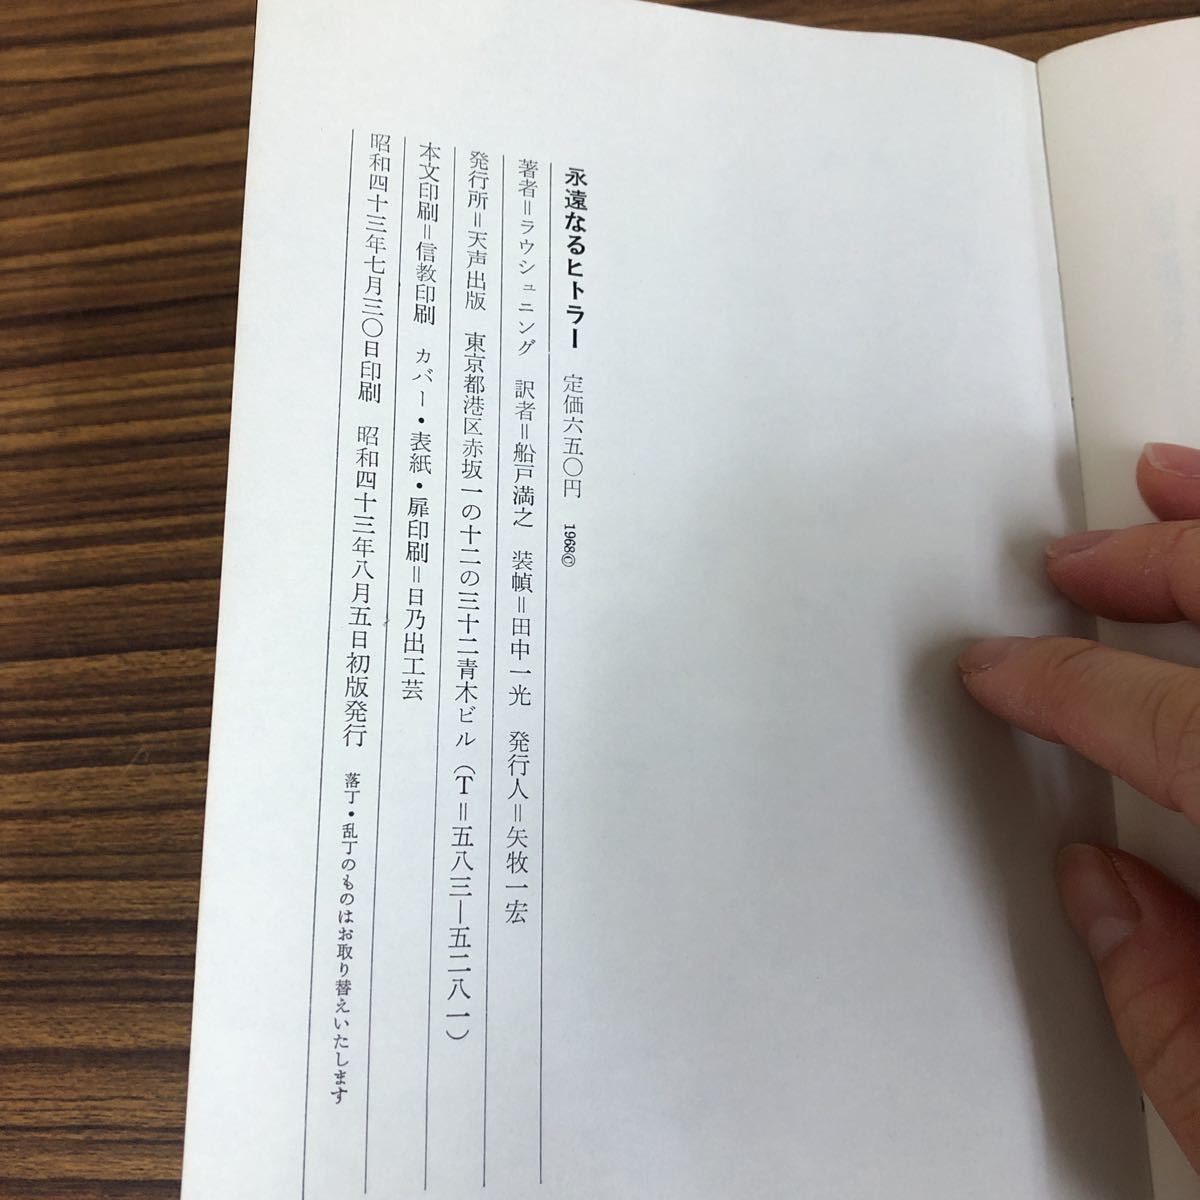 永遠なるヒトラー 定価六五〇円 1968©
著者＝ラウシュニング 訳者＝船戸満之 装幀＝田中一光 発行人＝矢牧一宏
発行所＝天声出版 東京都港区赤坂一の十二の三十二青木ビル（T＝五八三―五二八一）
本文印刷＝信教印刷 カバー・表紙・扉印刷＝日乃出工芸
昭和四十三年七月三〇日印刷 昭和四十三年八月五日初版発行 落丁・乱丁のものはお取り替えいたします